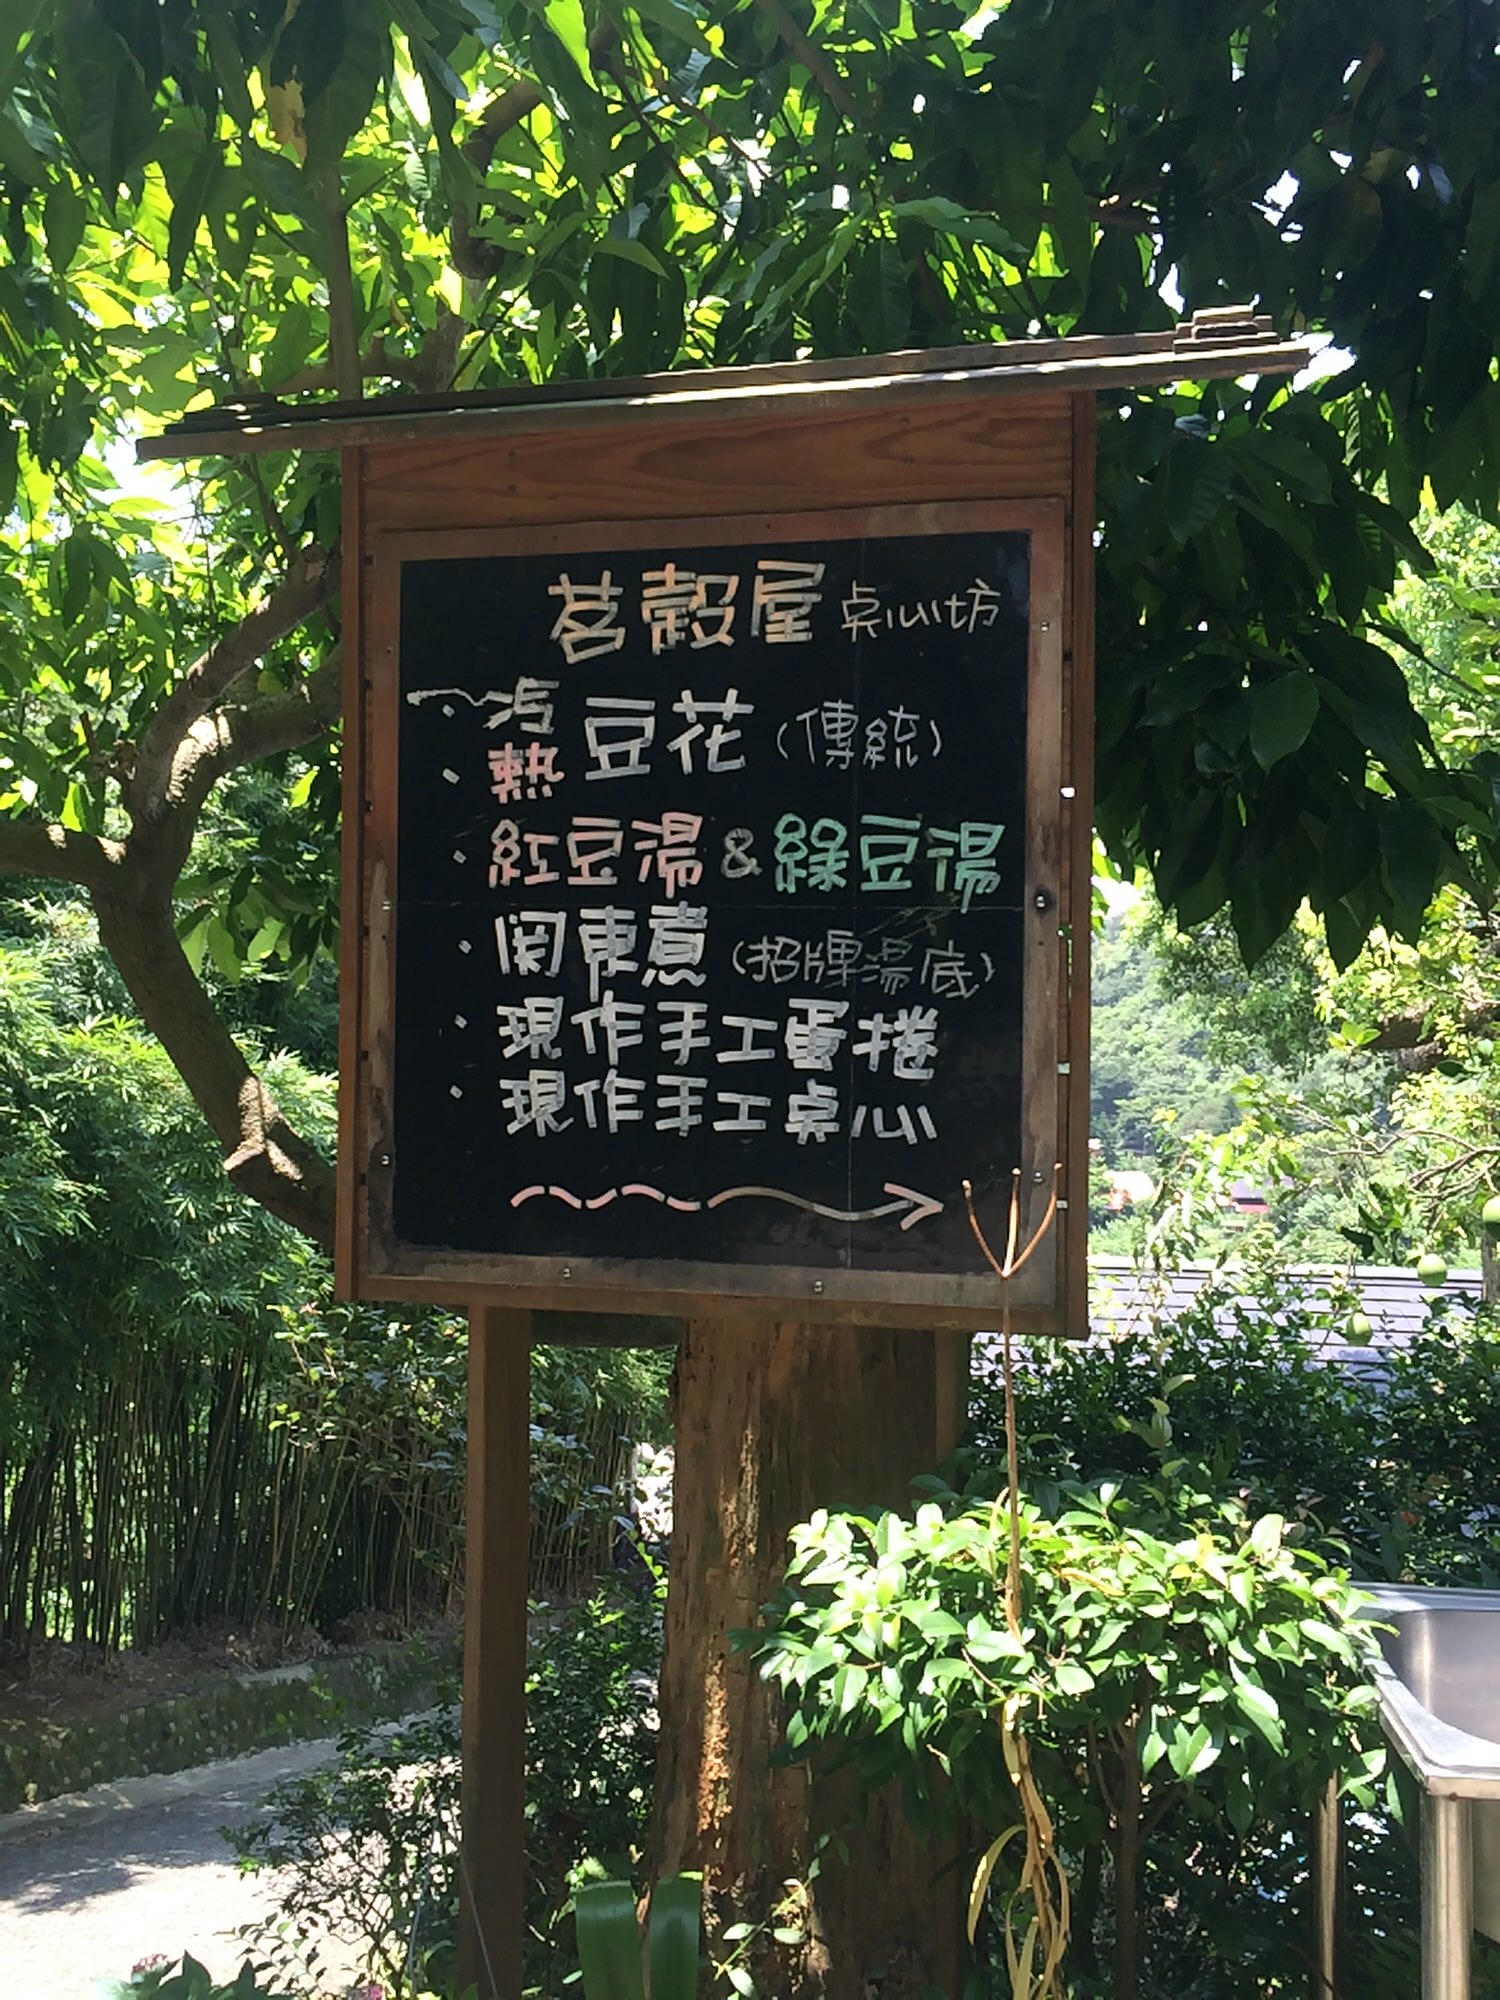 茗穀屋 点心坊
· 冷
· 熱 豆花 (傳統)
· 紅豆湯 & 綠豆湯
· 関東煮 (招牌湯底)
· 現作手工蛋捲
· 現作手工点心